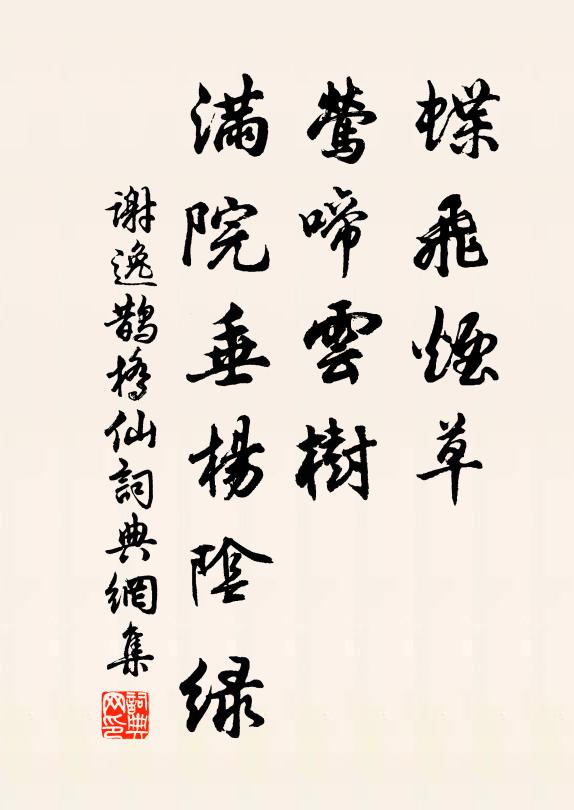 蝶飛煙草
鶯啼雲樹
滿院垂楊陰綠
謝逸鵲橋仙詞典網集
詞典網印